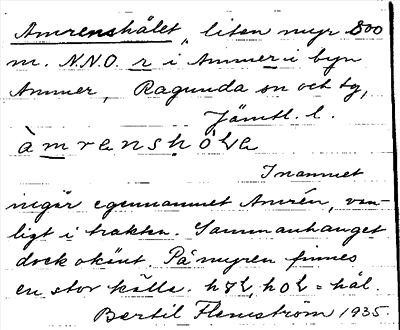 Amrenshålet, liten myr 800
m. N.N.O. r i Ammer i byn
Ammer, Ragunda sn och tg,
Jämtl. l.
I namnet
ingår egennamnet Amrén, van-
ligt i trakten. Sammanhanget
dock okänt. På myren finnes
en stor källa. = hål.
Bertil Flemström 1935.